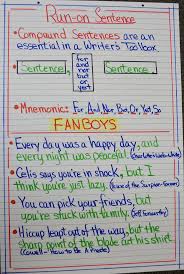 Run-on Sentence
• Compound Sentences are an
essential in a Writer's Toolbox
for
and
nor
but
or
yet
so
Sentence, Sentence.
• Mnemonic: For, And, Nor, But, Or, Yet, So
FANBOYS
• Every day was a happy day, and
every night was peaceful. (Charlotte's Web-White)
• Celis says you're in shock, but I
think you're just lazy. (
• You can pick your friends, but
you're stuck with family. (Jeff Foxworthy)
• Hiccup leapt out of the way, but the
sharp point of the blade cut his shirt
(Cowell - How to Be A Pirate)